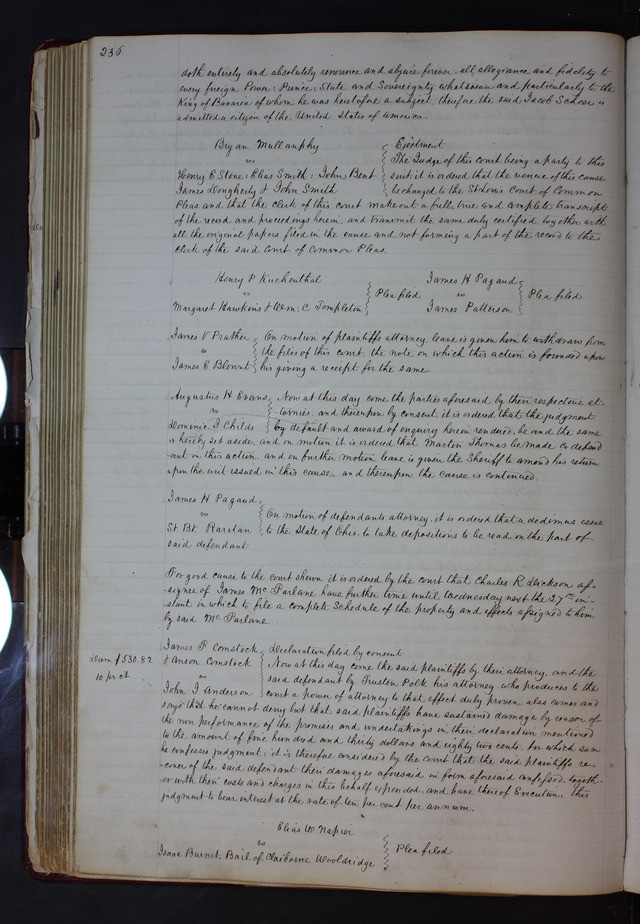 236
doth entirely and absolutely renounce and abjure forever all allegiance and fidelity to
every foreign Power, Prince, State and Sovereignty whatsoever and particularly to the
King of Bavaria of whom he was heretofore a subject, therefore the said Jacob is
admitted a citizen of the United States of America.
Bryan Mullanphy
vs
Henry C Stone, Elias Smith, John Bent
James Dougherty & John Smith
Ejectment
The Judge of this court being a party to this
suit it is ordered that the venue of this cause
be changed to the St Louis Court of Common
Pleas, and that the clerk of this court make out a full, true and complete transcript
of the record and proceedings herein, and transmit the same duly certified together with
all the original papers filed in the cause and not forming a part of the record to the
clerk of the said Court of Common Pleas.
Henry P Kuchenthal
vs
Margaret Hawkins & Wm. C Templeton
Plea filed
James H Pagaud
vs
James Patterson
Plea filed
James V Prather
vs
James E Blount
On motion of plaintiffs attorney leave is given him to withdraw from
the files of this court, the note on which this action is founded upon
his giving a receipt for the same
Augustus H Evans
vs
I Childs
Now at this day come the parties aforesaid by their respective at-
tornies, and thereupon by consent it is ordered that the judgment
by default and award of enquiry herein rendered, be and the same
is hereby set aside, and on motion it is ordered that Martin Thomas be made co defend-
ant in this action, and on further motion leave is given the Sheriff to amend his return
upon the writ issued in this cause, and thereupon the cause is continued.
James H Pagaud
vs
St. Bt. Raritan
On motion of defendants attorney, it is ordered that a dedimus issue
to the State of Ohio to take depositions to be read on the part of
said defendant
For good cause to the court shewn it is ordered by the court that Charles R Dickson as-
signee of James McParlane have further time until Wednesday next the 27th in-
stant in which to file a complete Schedule of the property and effects assigned to him
by said McParlane
Dam $530.82
10 pr ct
James F Comstock
& Anson Comstock
vs
John J Anderson
Declaration filed by consent
Now at this day come the said plaintiffs by their attorney, and the
said defendant by Trusten Polk his attorney, who produces to the
court a power of attorney to that effect duly proven, also comes and
says that he cannot deny but that said plaintiffs have sustained damage by reason of
the non performance of the promises and undertakings in their declaration mentioned
to the amount of five hundred and thirty dollars and eighty two cents, for which sum
he confesses judgment, it is therefore considered by the court that the said plaintiffs re-
cover of the said defendant their damages aforesaid in form aforesaid confessed, togeth-
er with their costs and charges in this behalf expended, and have thereof Execution, this
judgment to bear interest at the rate of ten per cent per annum.
Elias W Napier
vs
Isaac Burnet, Bail of Claiborne Wooldridge
Plea filed